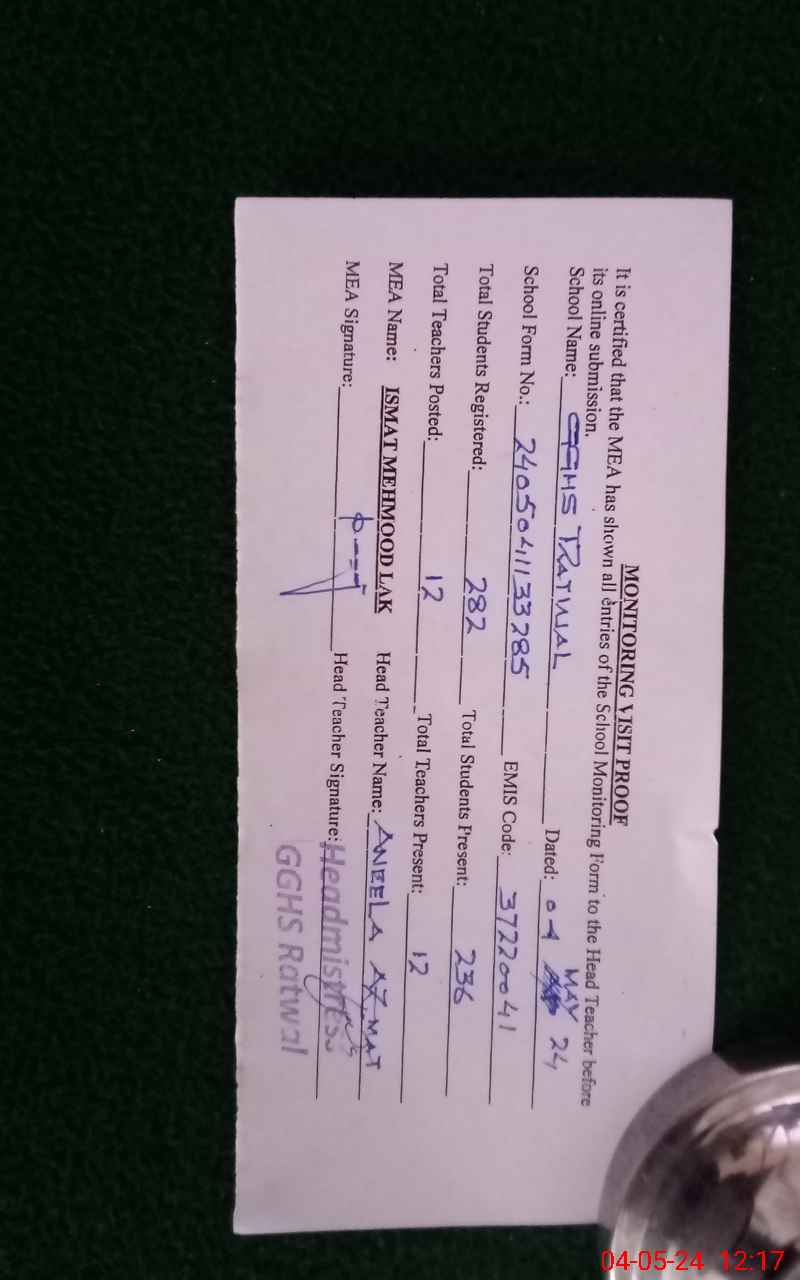 MONITORING VISIT PROOF
It is certified that the MEA has shown all entries of the School Monitoring Form to the Head Teacher before
its online submission.
School Name: GGHS RATWAL Dated: 04 MAY 24
School Form No.: 2405041133285 EMIS Code: 37220041
Total Students Registered: 282 Total Students Present: 236
Total Teachers Posted: 12 Total Teachers Present: 12
MEA Name: ISMAT MEHMOOD LAK Head Teacher Name: ANEELA AZMAT
MEA Signature: Head Teacher Signature: Headmistress
GGHS Ratwal
04-05-24 12:17